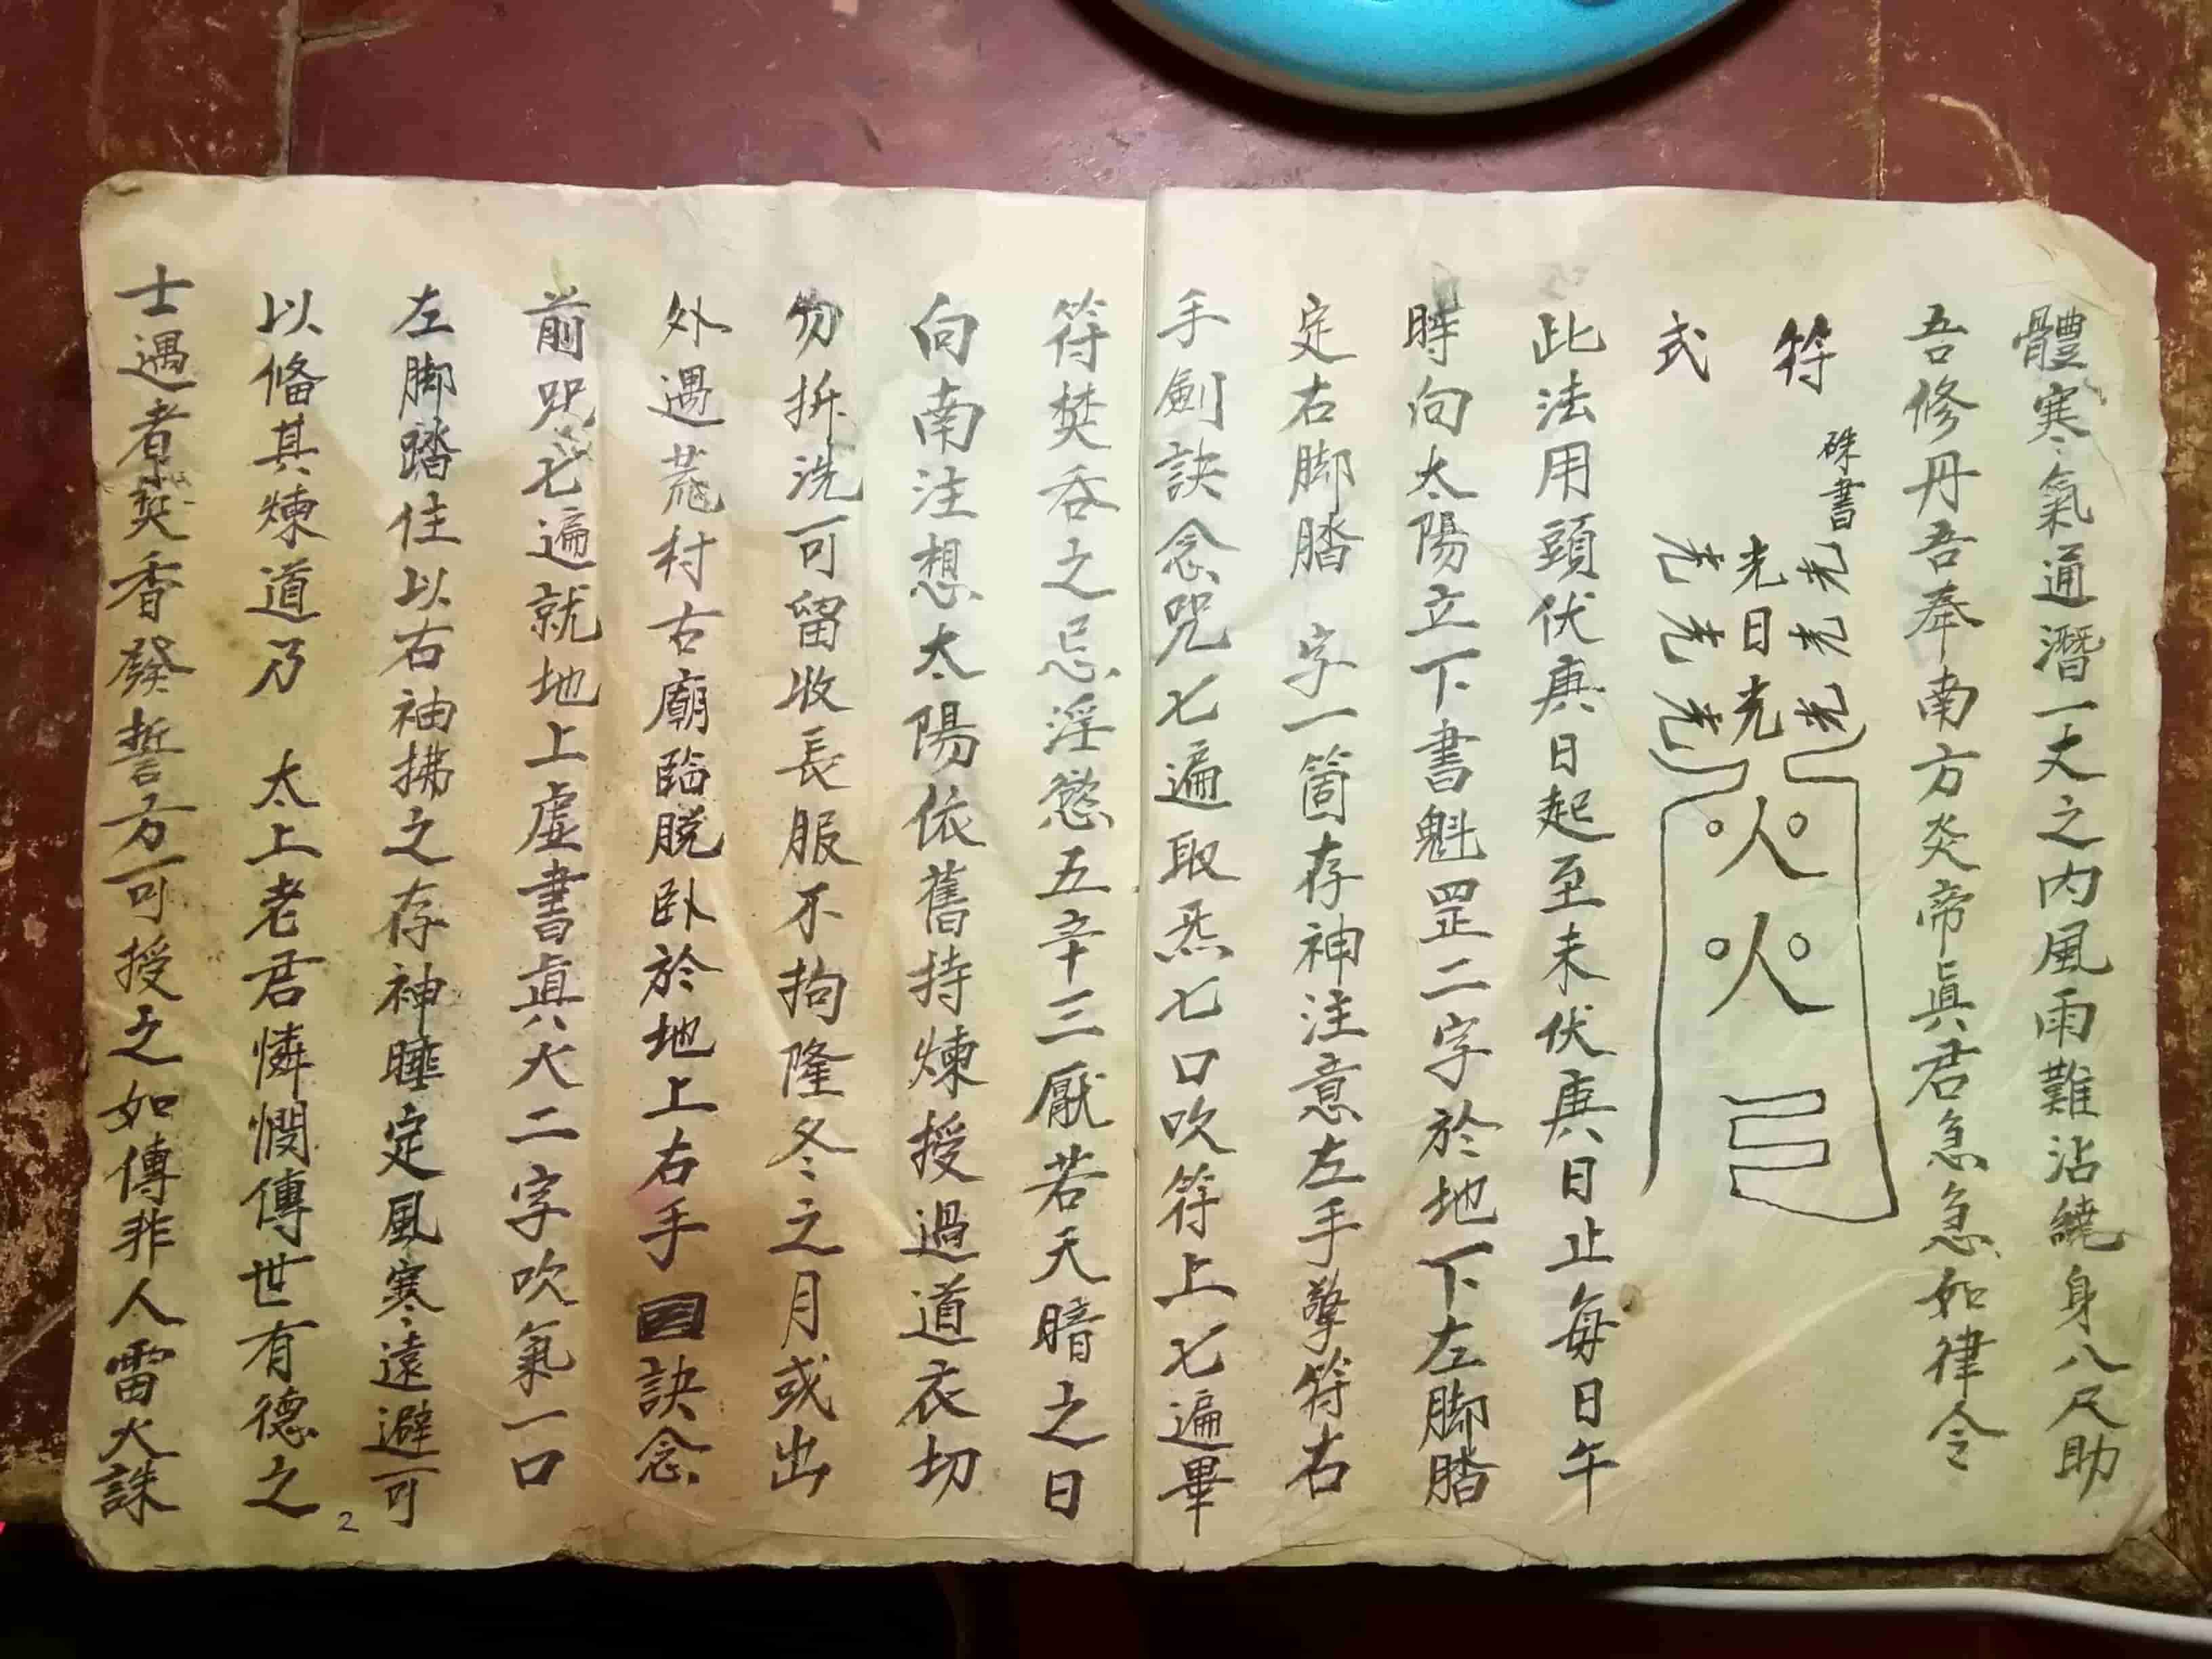 體寒氣通潛一丈之內風雨難沾繞身八尺助
吾修丹吾奉南方炎帝眞君急急如律令
符
硃書
光光光
光日光
光光光
火
火
式
此法用頭伏庚日起至末伏庚日止每日午
時向太陽立下書魁罡二字於地下左脚踏
定右脚踏 字一箇存神注意左手擎符右
手劍訣念咒七遍取炁七口吹符上七遍畢
符焚吞之忌淫慾五辛三厭若天暗之日
向南注想太陽依舊持煉授過道衣切
勿拆洗可留收長服不拘隆冬之月或出
外遇荒村古廟臨脫卧於地上右手訣念
前咒七遍就地上虛書眞火二字吹氣一口
左脚踏住以右袖拂之存神睡定風寒遠避可
以俻其煉道乃 太上老君憐憫傳世有德之
士遇者焚香發誓方可授之如傳非人雷火誅
2